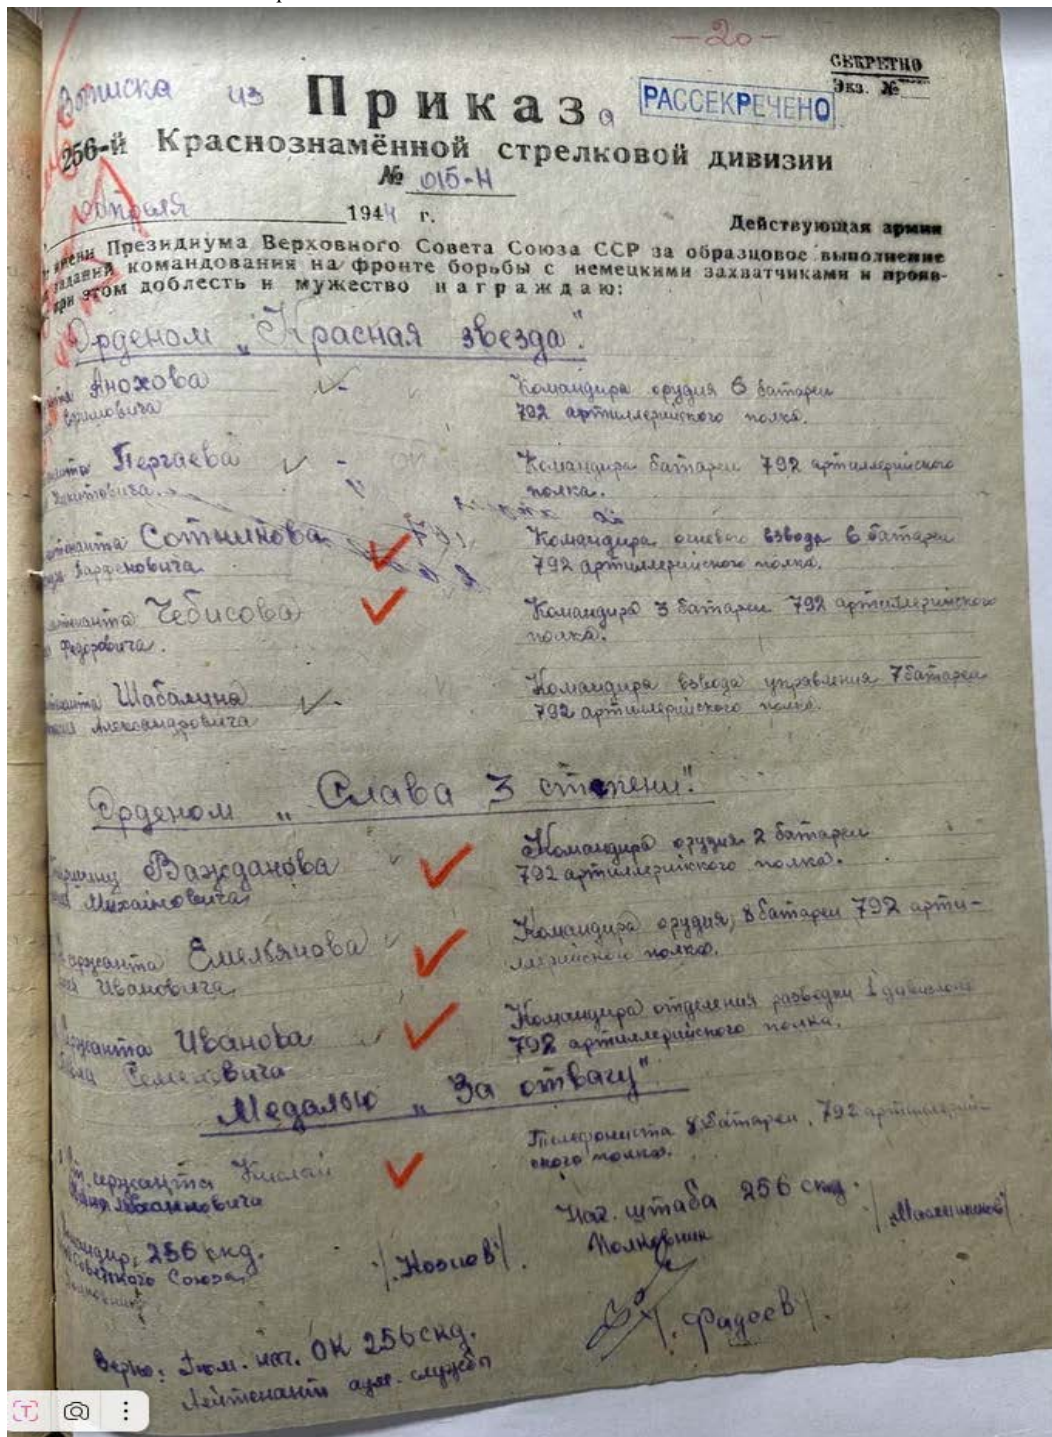 -20-
СЕКРЕТНО
Экз. №
Выписка из Приказа
РАССЕКРЕЧЕНО
256-й Краснознамённой стрелковой дивизии
№ 015-Н
апреля 1944 г.
Действующая армия
имени Президиума Верховного Совета Союза ССР за образцовое выполнение
заданий командования на фронте борьбы с немецкими захватчиками и прояв-
при этом доблесть и мужество награждаю:
Орденом „Красная звезда".
Анохова
Командира орудия 6 батареи
792 артиллерийского полка.
Пергаева
Командира батареи 792 артиллерийского
полка.
Сотникова
Парфеновича
Командира огневого взвода 6 батареи
792 артиллерийского полка.
Чебисова
Федоровича.
Командира 3 батареи 792 артиллерийского
полка.
Шабалина
Александровича
Командира взвода управления 7 батареи
792 артиллерийского полка.
Орденом „Слава 3 степени".
Важданова
Михайловича
Командира орудия 2 батареи
792 артиллерийского полка.
Емельянова
Ивановича
Командира орудия, 8 батареи 792 арти-
ллерийского полка.
Иванова
Семеновича
Командира отделения разведки 1 дивизиона
792 артиллерийского полка.
Медалью „За отвагу"
Ст. сержанта Кислай
Телефониста 8 батареи, 792 артиллерий-
ского полка.
Командир, 256 скд.
Советского Союза,
/.Козиов/.
Нач. штаба 256 скд.
Полковник
/Масленников/
Верно: Пом. нач. ОК 256 скд.
Лейтенант адм. службы
/.Фадеев/.